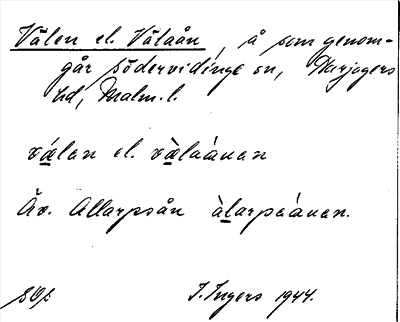 Välen el. Välaån, å som genom-
går södervidinge sn, Harjagers
hd, Malm. l.
vǽlen el. væ̀laánen
Äv. Allarpsån àlarpsánen.
J. Ingers 1944.